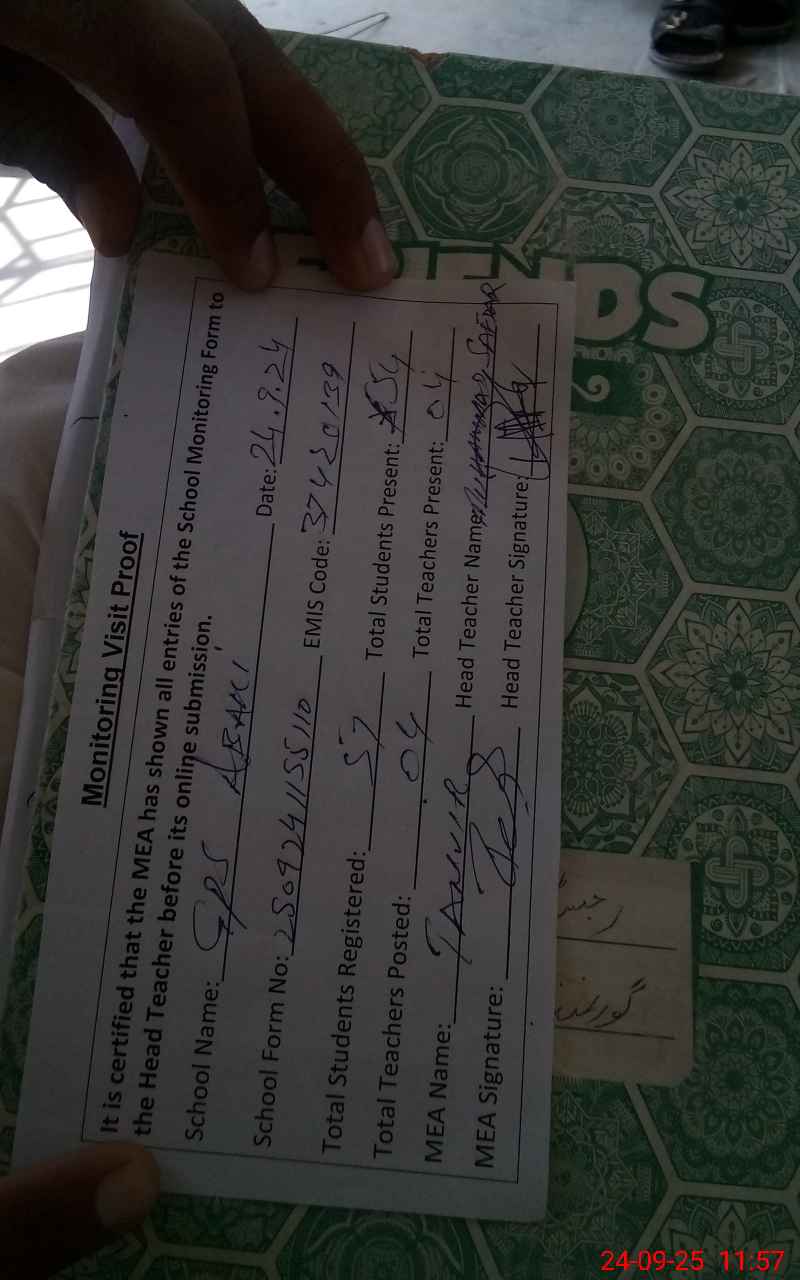 Monitoring Visit Proof
It is certified that the MEA has shown all entries of the School Monitoring Form to
the Head Teacher before its online submission.
School Name: GPS ABAKI Date: 24.9.24
School Form No: 2509241155110 EMIS Code: 37420139
Total Students Registered: 57 Total Students Present: 54
Total Teachers Posted: 04 Total Teachers Present: 04
MEA Name: TANVIR Head Teacher Name: MUHAMMAD SAFDAR
MEA Signature: Head Teacher Signature:
24-09-25 11:57